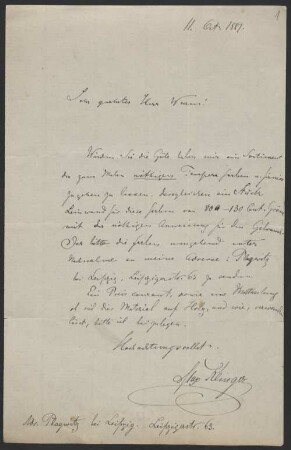 11. Oct. 1889.
Sehr geehrter Herr
Würden Sie die Güte haben mir ein Sortiment
der zum Malen nöthigen Tempera Farben u. Firnisse
zugehen zu lassen, desgleichen ein Stück
Leinwand für diese Farben von 80 - 130 Cent. Grösse
mit der nöthigen Anweisung für den Gebrauch.
Ich bitte die Farben umgehend unter
Nachnahme an meine Adresse: Plagwitz
bei Leipzig - Leipzigerstr. 63 zu senden.
Ein Preis courant, sowie eine Mittheilung
ob sich das Material auf Holz, und wie, verwenden
lässt, bitte ich beizulegen.
Hochachtungsvollst
Max Klinger
Adr. Plagwitz bei Leipzig - Leipzigerstr. 63.